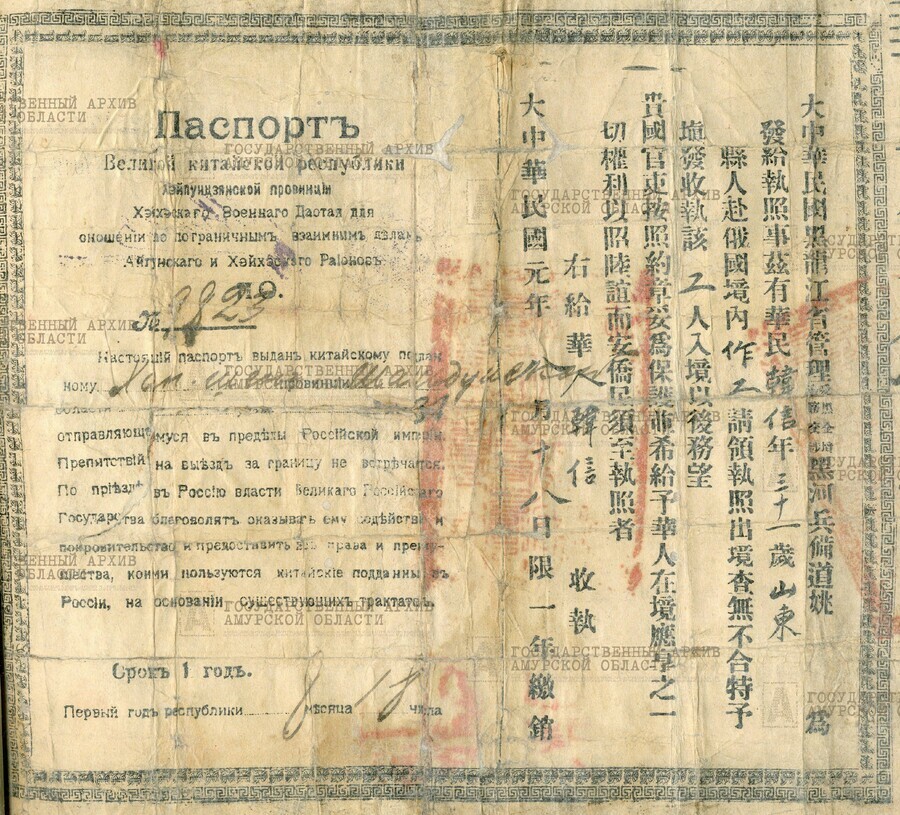 Паспортъ
Великой китайской республики
Хэйлундзянской провинціи
Хэйхэскаго Военнаго Даотая для
сношеній по пограничнымъ взаимнымъ дѣламъ
Айгунскаго и Хэйхэскаго Раіоновъ
№ 9823
Настоящій паспортъ выданъ китайскому поддан
ному Хан-шин провинціи Шандунской
области 31
отправляющемуся въ предѣлы Россійской имперіи.
Препитствій на выѣздъ за границу не встрѣчается.
По пріѣздѣ въ Россію власти Великаго Россійскаго
Государства благоволятъ оказывать ему содѣйствіе и
покровительство и предоставить всѣ права и преиму-
щества, коими пользуются китайскіе подданные въ
Россіи, на основаніи существующихъ трактатовъ.
Срокъ 1 годъ.
Первый годъ республики 8 мѣсяца 18 числа
大中華民國黑龍江省管理 黑河兵備道姚 為
發給執照事茲有華民韓信年三十一歲山東
縣人赴俄國境內作工請領執照出境查無不合特予
填發收執該工人入境以後務望
貴國官吏按照約章妥為保護並希給予華人在境應享之一
切權利以照陸誼而安僑民須至執照者
右給華 韓信 收執
大中華民國元年 八月十八日限一年繳銷
ГОСУДАРСТВЕННЫЙ АРХИВ
АМУРСКОЙ ОБЛАСТИ